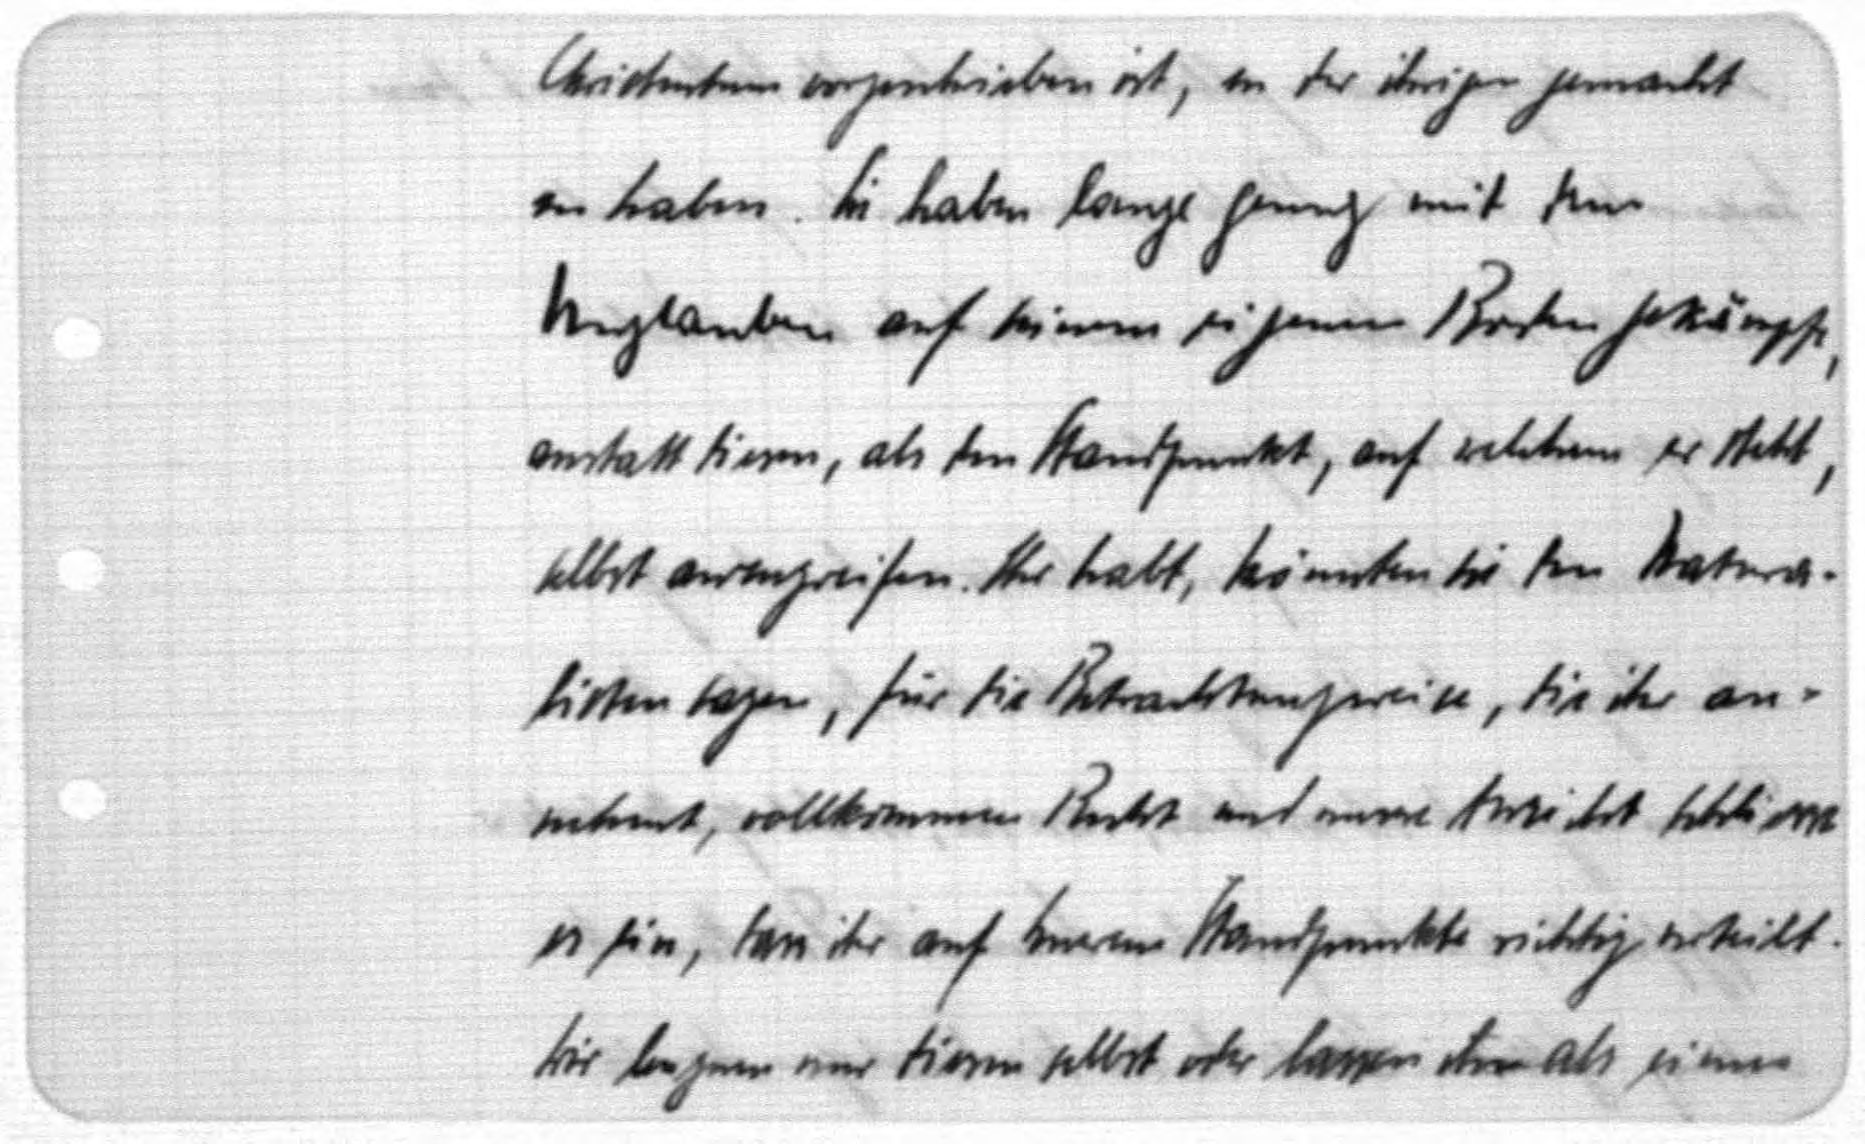 Christentum vorgeschrieben ist, zu der ihrigen gemacht
zu haben. Sie haben lange genug mit dem
Unglauben auf seinem eigenen Boden gekämpft,
anstatt diesen, als den Standpunkt, auf welchem er steht,
selbst anzugreifen. Ihr habt, könnten sie den Natura-
listen sagen, für die Betrachtungsweise, die ihr an-
nehmt, vollkommen Recht und unsre Ansicht schliesst
es ein, dass ihr auf eurem Standpunkte richtig urteilt.
Wir leugnen nur diesen selbst oder lassen ihn als einen